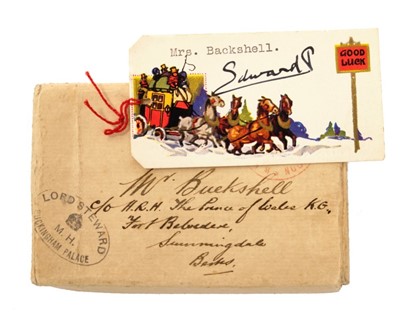 Mrs. Backshell.
Edward P
GOOD
LUCK
LORD STEWARD
M. H.
BUCKINGHAM PALACE
Mr Buckshell
c/o H.R.H. The Prince of Wales K.G.,
Fort Belvedere,
Sunningdale
Berks.